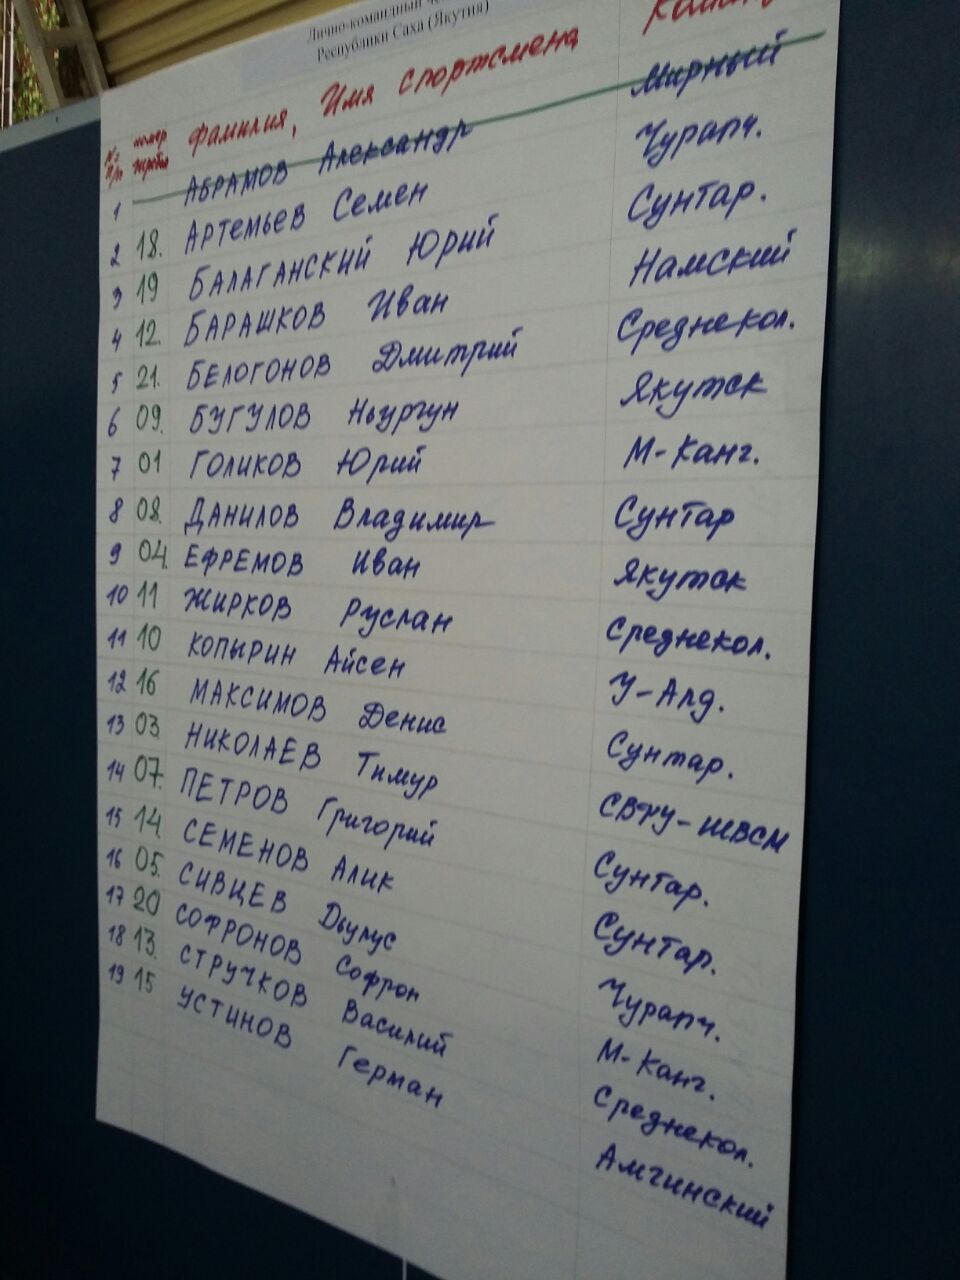 Лично-командный
Республики Саха (Якутия)
№ п/п номер жребия Фамилия, Имя спортсмена
1 АБРАМОВ Александр Мирный
2 18. АРТЕМЬЕВ Семен Чурапч.
3 19 БАЛАГАНСКИЙ Юрий Сунтар.
4 12. БАРАШКОВ Иван Намский
5 21. БЕЛОГОНОВ Дмитрий Среднекол.
6 09. БУГУЛОВ Ньургун Якутск
7 01 ГОЛИКОВ Юрий М-Канг.
8 08. ДАНИЛОВ Владимир Сунтар
9 04. ЕФРЕМОВ Иван Якутск
10 11 ЖИРКОВ Руслан Среднекол.
11 10 КОПЫРИН Айсен У-Алд.
12 16 МАКСИМОВ Денис Сунтар.
13 03 НИКОЛАЕВ Тимур СВФУ-ШВСМ
14 07. ПЕТРОВ Григорий Сунтар.
15 14. СЕМЕНОВ Алик Сунтар.
16 05. СИВЦЕВ Дьулус Чурапч.
17 20 СОФРОНОВ Софрон М-Канг.
18 13. СТРУЧКОВ Василий Среднекол.
19 15 УСТИНОВ Герман Амгинский